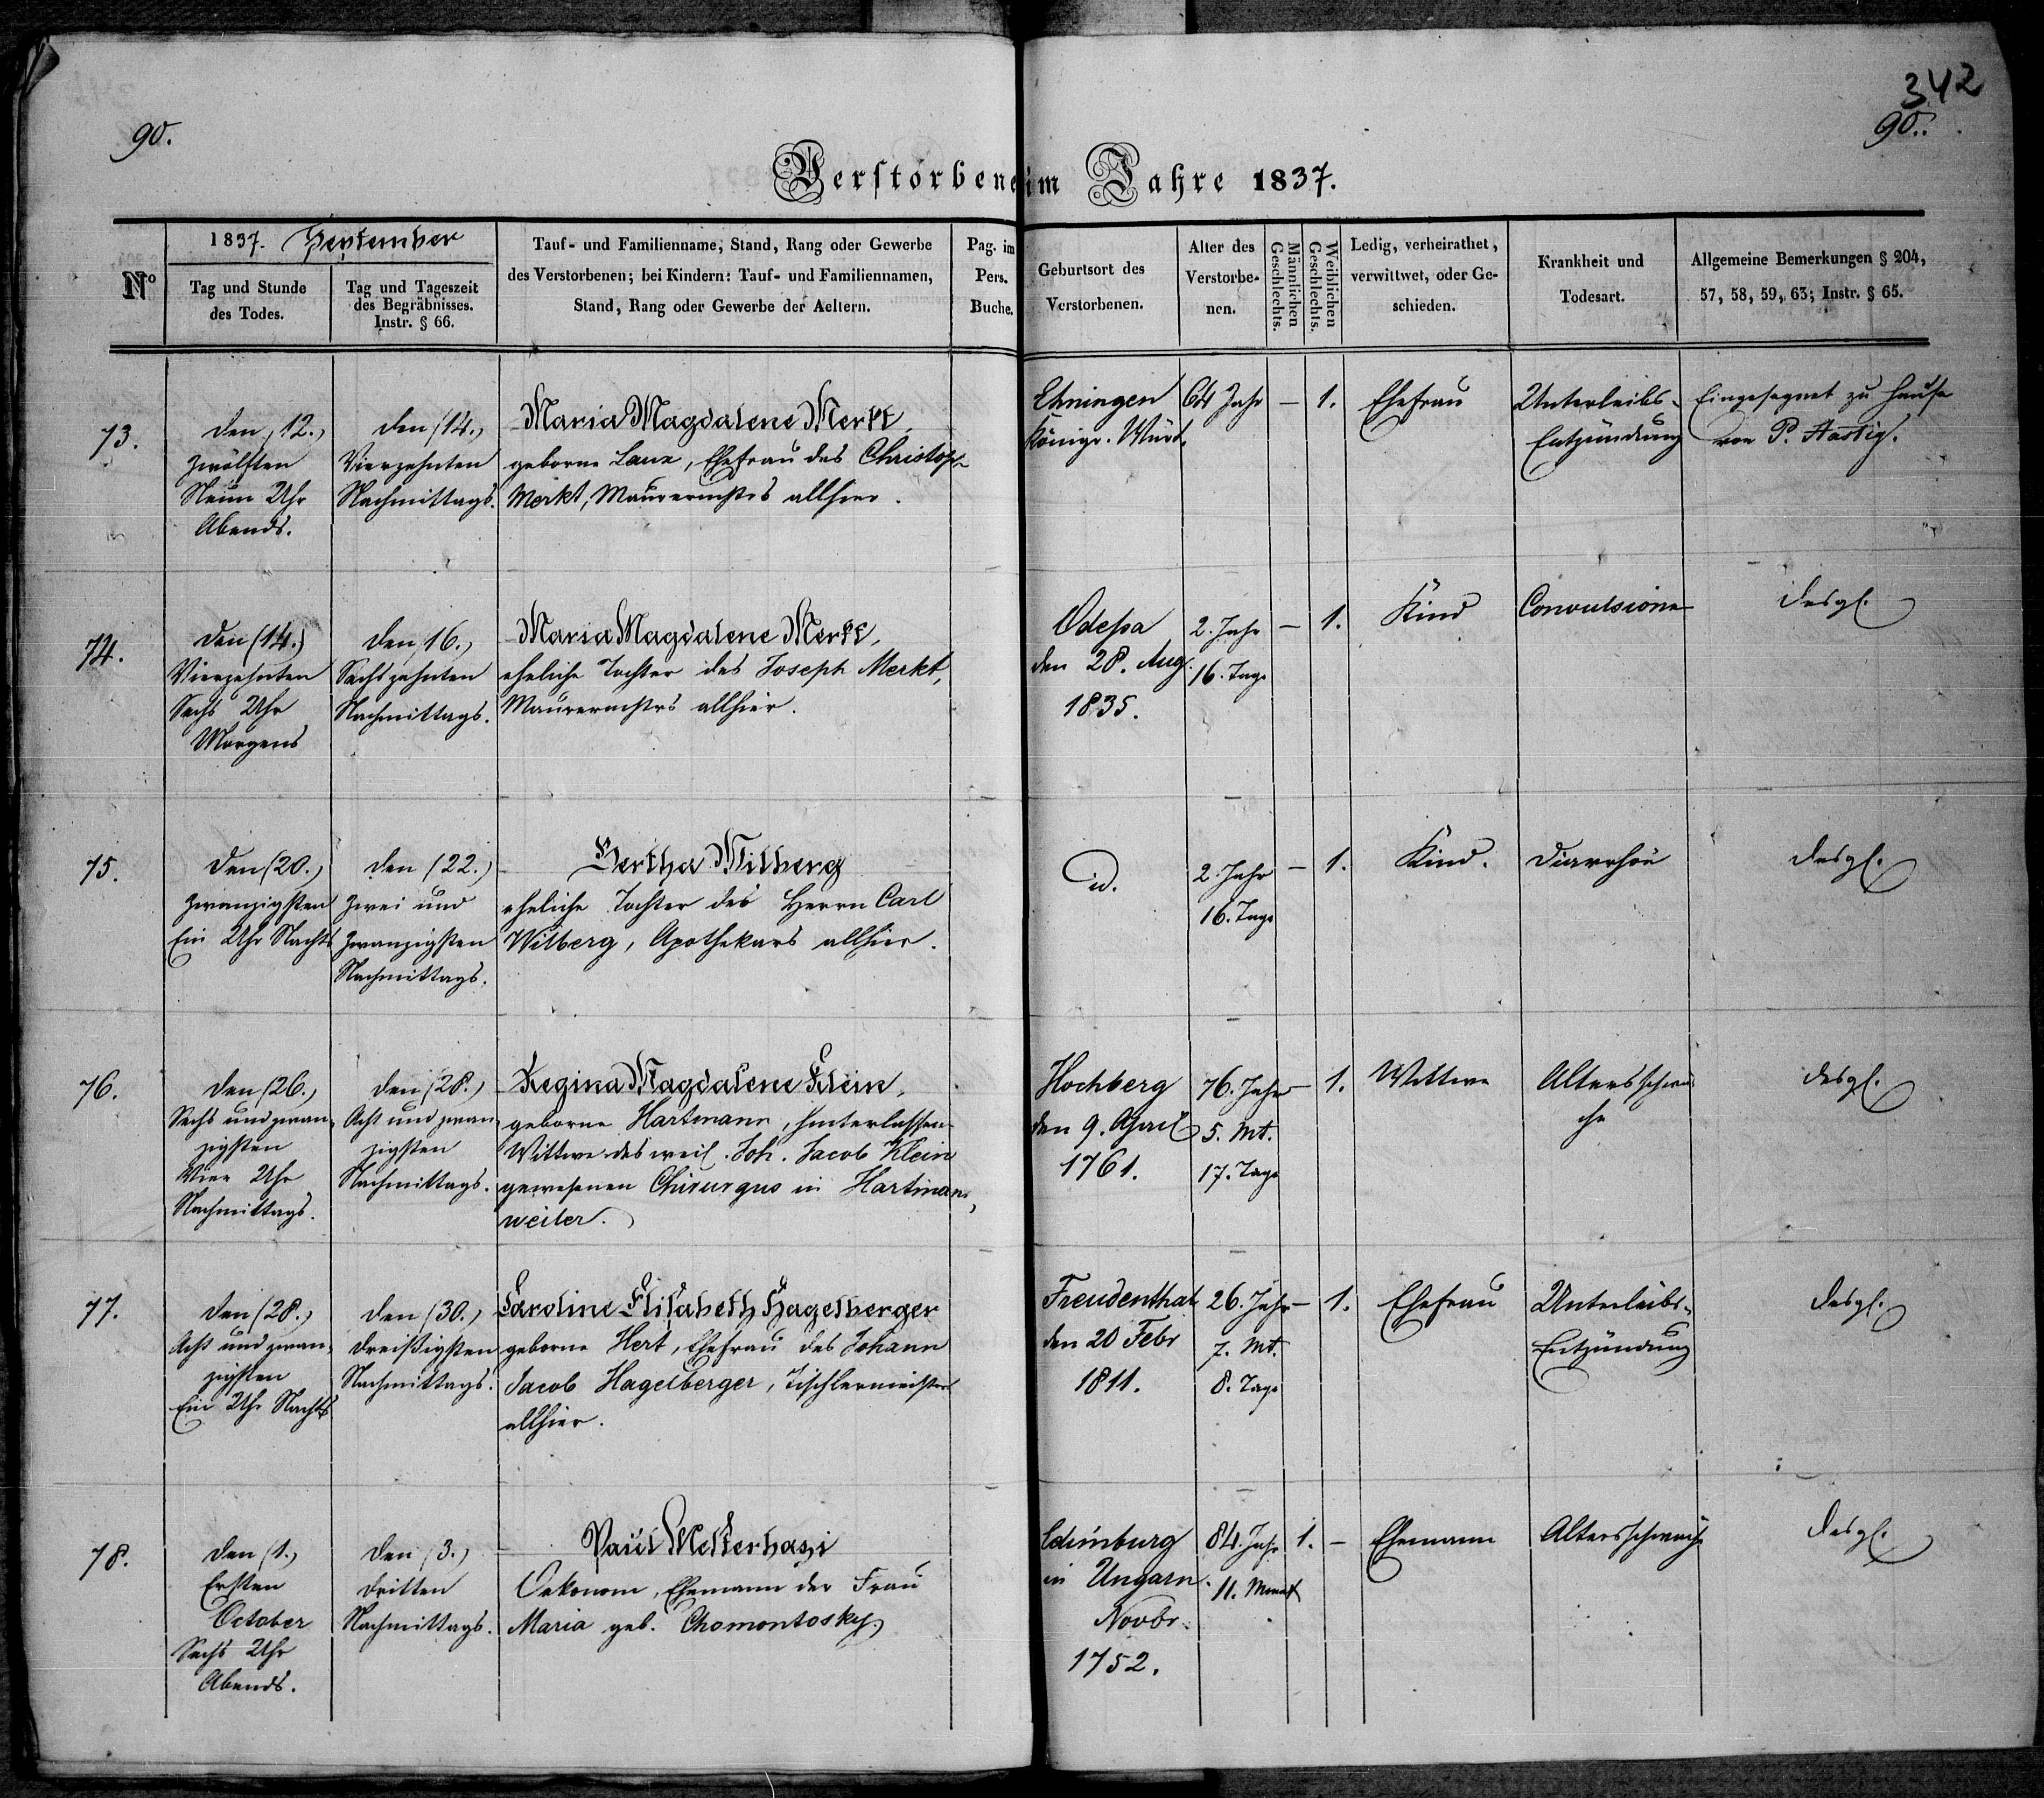 342
90.
90.
Verstorbene im Jahre 1837.
Nº
1837. September
Tag und Stunde
des Todes.
Tag und Tageszeit
des Begräbnisses.
Instr. § 66.
Tauf- und Familienname, Stand, Rang oder Gewerbe
des Verstorbenen; bei Kindern: Tauf- und Familiennamen,
Stand, Rang oder Gewerbe der Aeltern.
Pag. im
Pers.
Buche.
Geburtsort des
Verstorbenen.
Alter des
Verstorbe-
nen.
Männlichen
Geschlechts.
Weiblichen
Geschlechts.
Ledig, verheirathet,
verwittwet, oder Ge-
schieden.
Krankheit und
Todesart.
Allgemeine Bemerkungen § 204,
57, 58, 59, 63; Instr. § 65.
73.
den (12.)
Zwölften
Neun Uhr
Abends.
den (14.)
Vierzehnten
Nachmittags.
Maria Magdalene Merkt,
geborne Lanx, Ehefrau des Christoph
Merkt, Maurermstrs allhier.
Ehningen
Königr. Würt.
64 Jahr
–
1.
Ehefrau
Unterleibs-
Entzündung
Eingesegnet zu Hause
von P. Hastig.
74.
den (14.)
Vierzehnten
Sechs Uhr
Morgens
den 16.)
Sechszehnten
Nachmittags.
Maria Magdalene Merkt,
eheliche Tochter des Joseph Merkt,
Maurermstrs allhier.
Odessa
den 28. Aug.
1835.
2. Jahr
16. Tage
–
1.
Kind
Convulsione
desgl.
75.
den (20.)
Zwanzigsten
Ein Uhr Nachts
den (22.)
Zwei und
Zwanzigsten
Nachmittags.
Bertha Wilberg
eheliche Tochter des Herrn Carl
Wilberg, Apothekers allhier.
id.
2. Jahr
16. Tage
–
1.
Kind.
Diarrhöe
desgl.
76.
den (26.)
Sechs und zwan-
zigsten
Vier Uhr
Nachmittags.
den (28.)
Acht und zwan-
zigsten
Nachmittags.
Regina Magdalene Klein,
geborne Hartmann, hinterlassene
Wittwe des weil. Joh. Jacob Klein
gewesenen Chirurgus in Hartman-
weiler.
Hochberg
den 9. April
1761.
76. Jahr
5. Mt.
17. Tage
–
1.
Wittwe
Altersschwä-
che
desgl.
77.
den (28.)
Acht und zwan-
zigsten
Ein Uhr Nachts
den (30.)
Dreißigsten
Nachmittags.
Caroline Elisabeth Hagelberger
geborne Hert, Ehefrau des Johann
Jacob Hagelberger, Tischlermeisters
allhier.
Freudenthal
den 20 Febr
1811.
26. Jahr
7. Mt.
8. Tage
–
1.
Ehefrau
Unterleibs-
Entzündung
desgl.
78.
den (1.)
Ersten
October
Sechs Uhr
Abends.
den (3.)
Dritten
Nachmittags.
Paul
Oekonom, Ehemann der Frau
Maria geb. Chomontosky.
Edimburg
in Ungarn.
Novbr.
1752.
84. Jahr
11. Monat
1.
–
Ehemann
Altersschwäche
desgl.